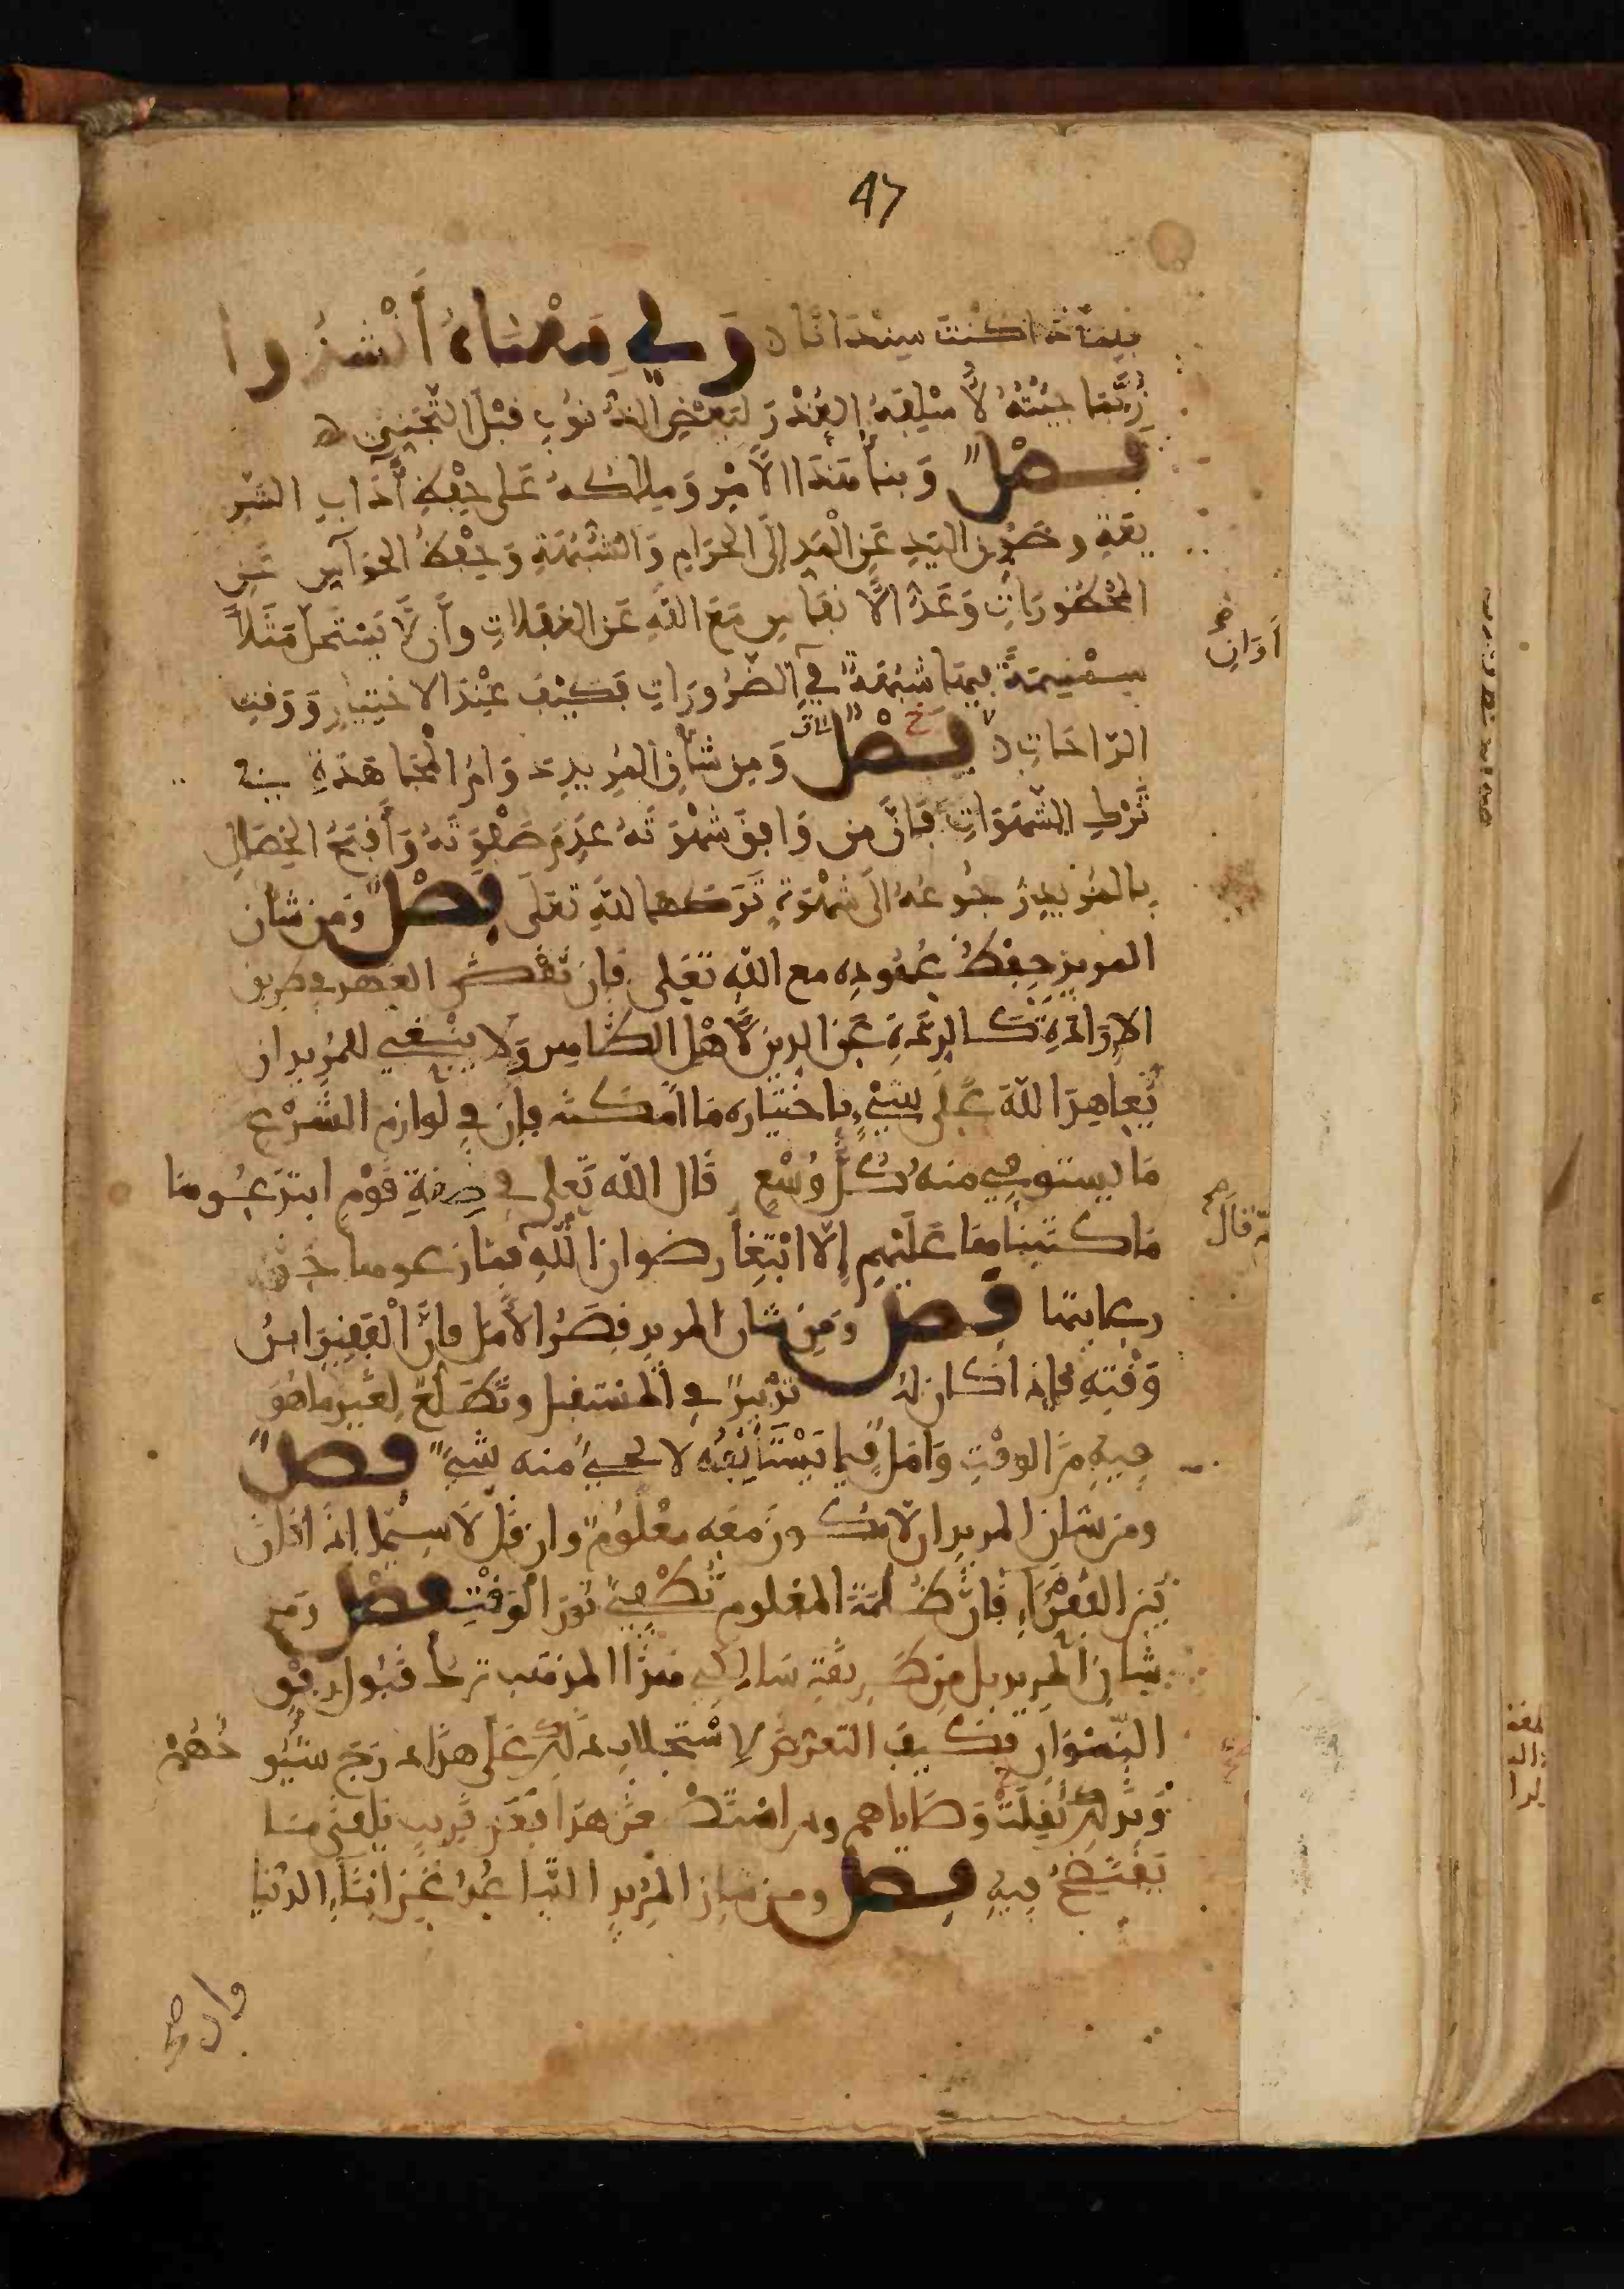 47
فيما ذا كنت سيدانا وفي معناه أنشدوا
ربما جئته لأسلفه العذر لبعض الذنوب قبل التجني
فصل وبناء هذا الأمر وملاكه على حفظ آداب الشر
يعة وصون اليد عن المد إلى الحرام والشبهة وحفظ الحواس عن
المحظورات وعد الأنفاس مع الله عن الغفلات وأن لا يستحل مثلا
أوان صح
سمسمة فيها شبهة في الضرورات فكيف عند الاختيار ووقت
الراحات فصل ومن شأن المريد دوام المجاهدة في
ترك الشهوات فإن من وافق شهوته عدم صفوته وأقبح الخصال
بالمريد رجوعه إلى شهوة تركها لله تعلى فصل ومن شأن
المريد حفظ عهوده مع الله تعلى فإن نقض العهد في طريق
الإرادة كالردة عن الدين لأهل الظاهر ولا ينبغي للمريد ان
يعاهد الله على شيء باختياره ما امكنه فإن في لوازم الشرع
ما يستوفي منه كل وسع قال الله تعلى في صفة قوم ابتدعوها
ما كتبناها عليهم إلا ابتغاء رضوان الله فما رعوها حق
رعايتها فصل ومن شان المريد قصر الأمل فإن الفقير ابن
وقته فإذا كان له تدبير في المستقبل وتطلع لغير ما هو
فيه من الوقت وأمل فيما يستأنفه لا يجيء منه شيء فصل
ومن شان المريد ان لا يكون معه معلوم وان قل لا سيما إذا كان
بين الفقراء فإن ظلمة المعلوم تطفئ نور الوقت فصل ومن
شان المريد بل من طريقة سالكي هذا المذهب ترك قبول رفق
النسوان فكيف التعرض لاستجلاب ذلك على هذا درج شيوخهم
وبذلك نفذت وصاياهم ومن استصغر هذا فعن قريب يلقى ما
يفتضح فيه فصل ومن شان المريد التباعد عن ابناء الدنيا
فان صح